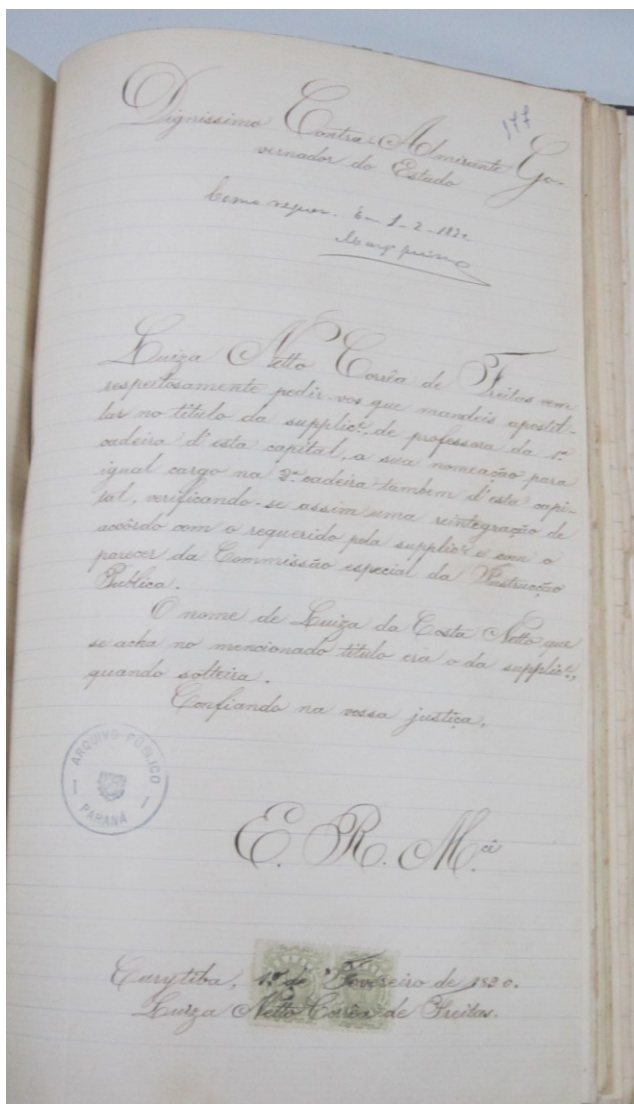 177
Dignissimo Contra-Almirante Go-
vernador do Estado
Como requer. Em 1-2-1890
Luiza Netto Corrêa de Freitas vem
respeitosamente pedir-vos que mandeis apostil-
lar no titulo da supplicᵉ, de professora da 1ª
cadeira d'esta capital, a sua nomeação para
igual cargo na 2ª cadeira tambem d'esta capi-
tal, verificando-se assim uma reintegração de
accôrdo com o requerido pela supplicᵉ e com o
parecer da Commissão especial da Instrucção
Publica.
O nome de Luiza da Costa Netto que
se acha no mencionado titulo era o da supplicᵉ,
quando solteira.
Confiando na vossa justiça,
ARQUIVO PÚBLICO
PARANÁ
E. R. M.cê
Curytiba, 1º de Fevereiro de 1890.
Luiza Netto Corrêa de Freitas.